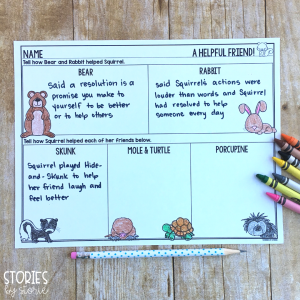 NAME
A HELPFUL FRIEND!
Tell how Bear and Rabbit helped Squirrel.
BEAR
said a resolution is a
promise you make to
yourself to be better
or to help others
RABBIT
said Squirrel's actions were
louder than words and Squirrel
had resolved to help
someone every day
Tell how Squirrel helped each of her friends below.
SKUNK
Squirrel played Hide-
and-Skunk to help
her friend laugh and
feel better
MOLE & TURTLE
PORCUPINE
STORIES
by Storie